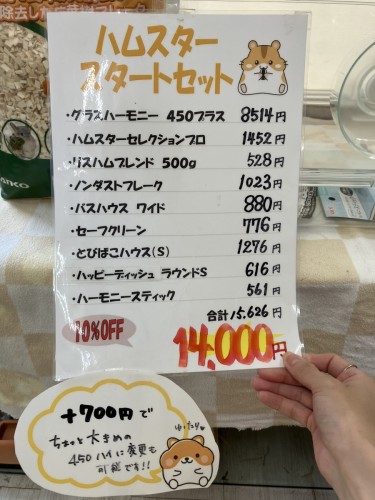 除去した
ハムスター
スタートセット
・グラスハーモニー 450プラス 8514円
・ハムスターセレクションプロ 1452円
・リスハムブレンド 500g 528円
・ノンダストフレーク 1023円
・バスハウス ワイド 880円
・セーフクリーン 776円
・とびばこハウス(S) 1276円
・ハッピーディッシュ ラウンドS 616円
・ハーモニースティック 561円
合計15,626円
10%OFF
14,000円
+700円で
ちょっと大きめの
450ハイに変更も
可能です!!
ゆったり♥